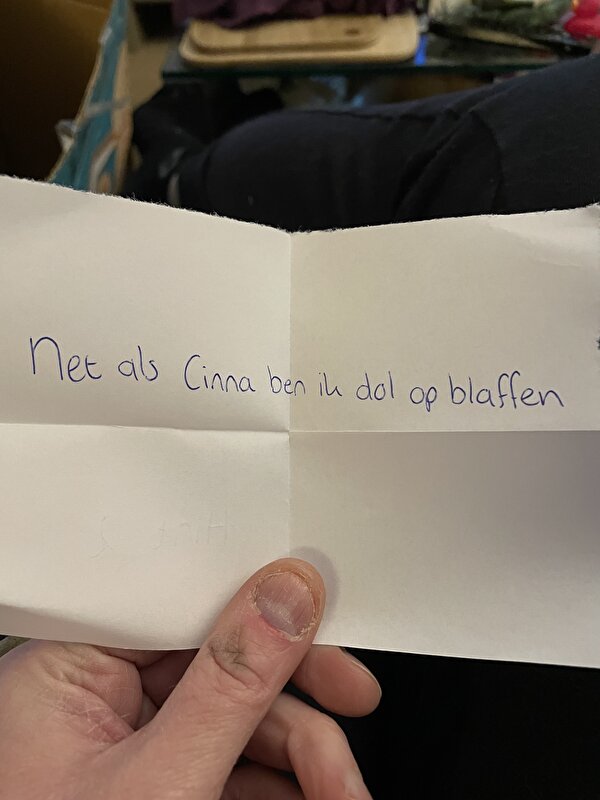 Net als Cinna ben ik dol op blaffen